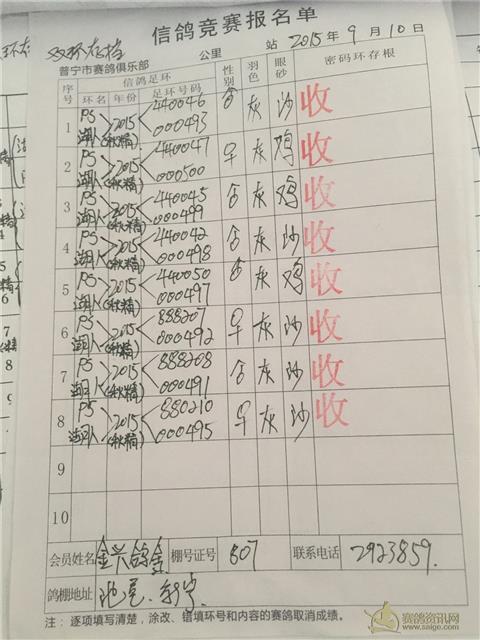 信鸽竞赛报名单
双环存档
普宁市赛鸽俱乐部 公里 站 2015年9月10日
序号 信鸽足环 性别 羽色 眼砂 密码环存根
环名 年份 足环号码
1 PS 2015 440046 灰 沙 收
(秋精) 000493
2 PS 2015 440047 灰 鸡 收
(秋精) 000500
3 PS 2015 440045 灰 鸡 收
(秋精) 000499
4 PS 2015 440042 灰 沙 收
(秋精) 000498
5 PS 2015 440050 灰 鸡 收
(秋精) 000497
6 PS 2015 888207 灰 沙 收
(秋精) 000492
7 PS 2015 888208 灰 沙 收
(秋精) 000491
8 PS 2015 880210 灰 沙 收
(秋精) 000495
9
10
会员姓名 金兴鸽舍 棚号证号 807 联系电话 2923859.
鸽棚地址
注：逐项填写清楚，涂改、错填环号和内容的赛鸽取消成绩。
赛鸽资讯网
www.saige.com